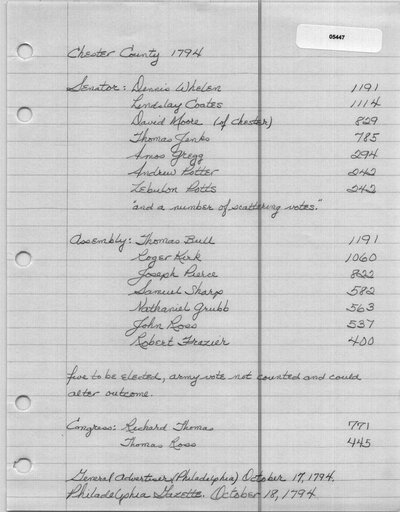 05447
Chester County 1794
Senator: Dennis Whelen 1191
Lindslay Coates 1114
David Moore (of Chester) 829
Thomas Jenks 785
Amos Gregg 294
Andrew Potter 242
Zebulon Potts 242
"and a number of scattering votes."
Assembly: Thomas Bull 1191
Roger Kirk 1060
Joseph Pierce 822
Samuel Sharp 582
Nathaniel Grubb 563
John Ross 537
Robert Frazier 400
five to be elected, army vote not counted and could
alter outcome.
Congress: Richard Thomas 771
Thomas Ross 445
General Advertiser (Philadelphia) October 17, 1794.
Philadelphia Gazette. October 18, 1794